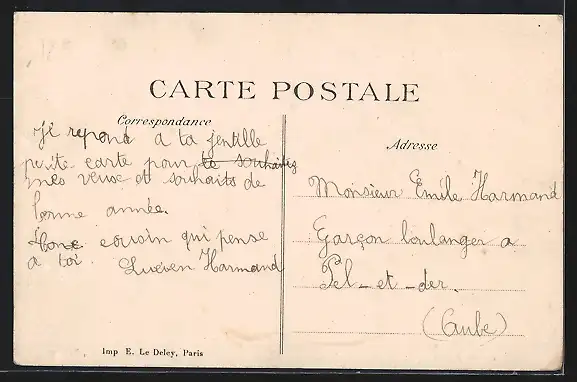 CARTE POSTALE
Correspondance
Je repond a ta jentille
petite carte pour te souhaitez
mes veuse et souhaits de
bonne année.
cousin qui pense
a toi. Lucien Harmand
Adresse
Monsieur Emile Harmand
Garçon boulanger a
Pel-et-der.
(Aube)
Imp E. Le Deley, Paris